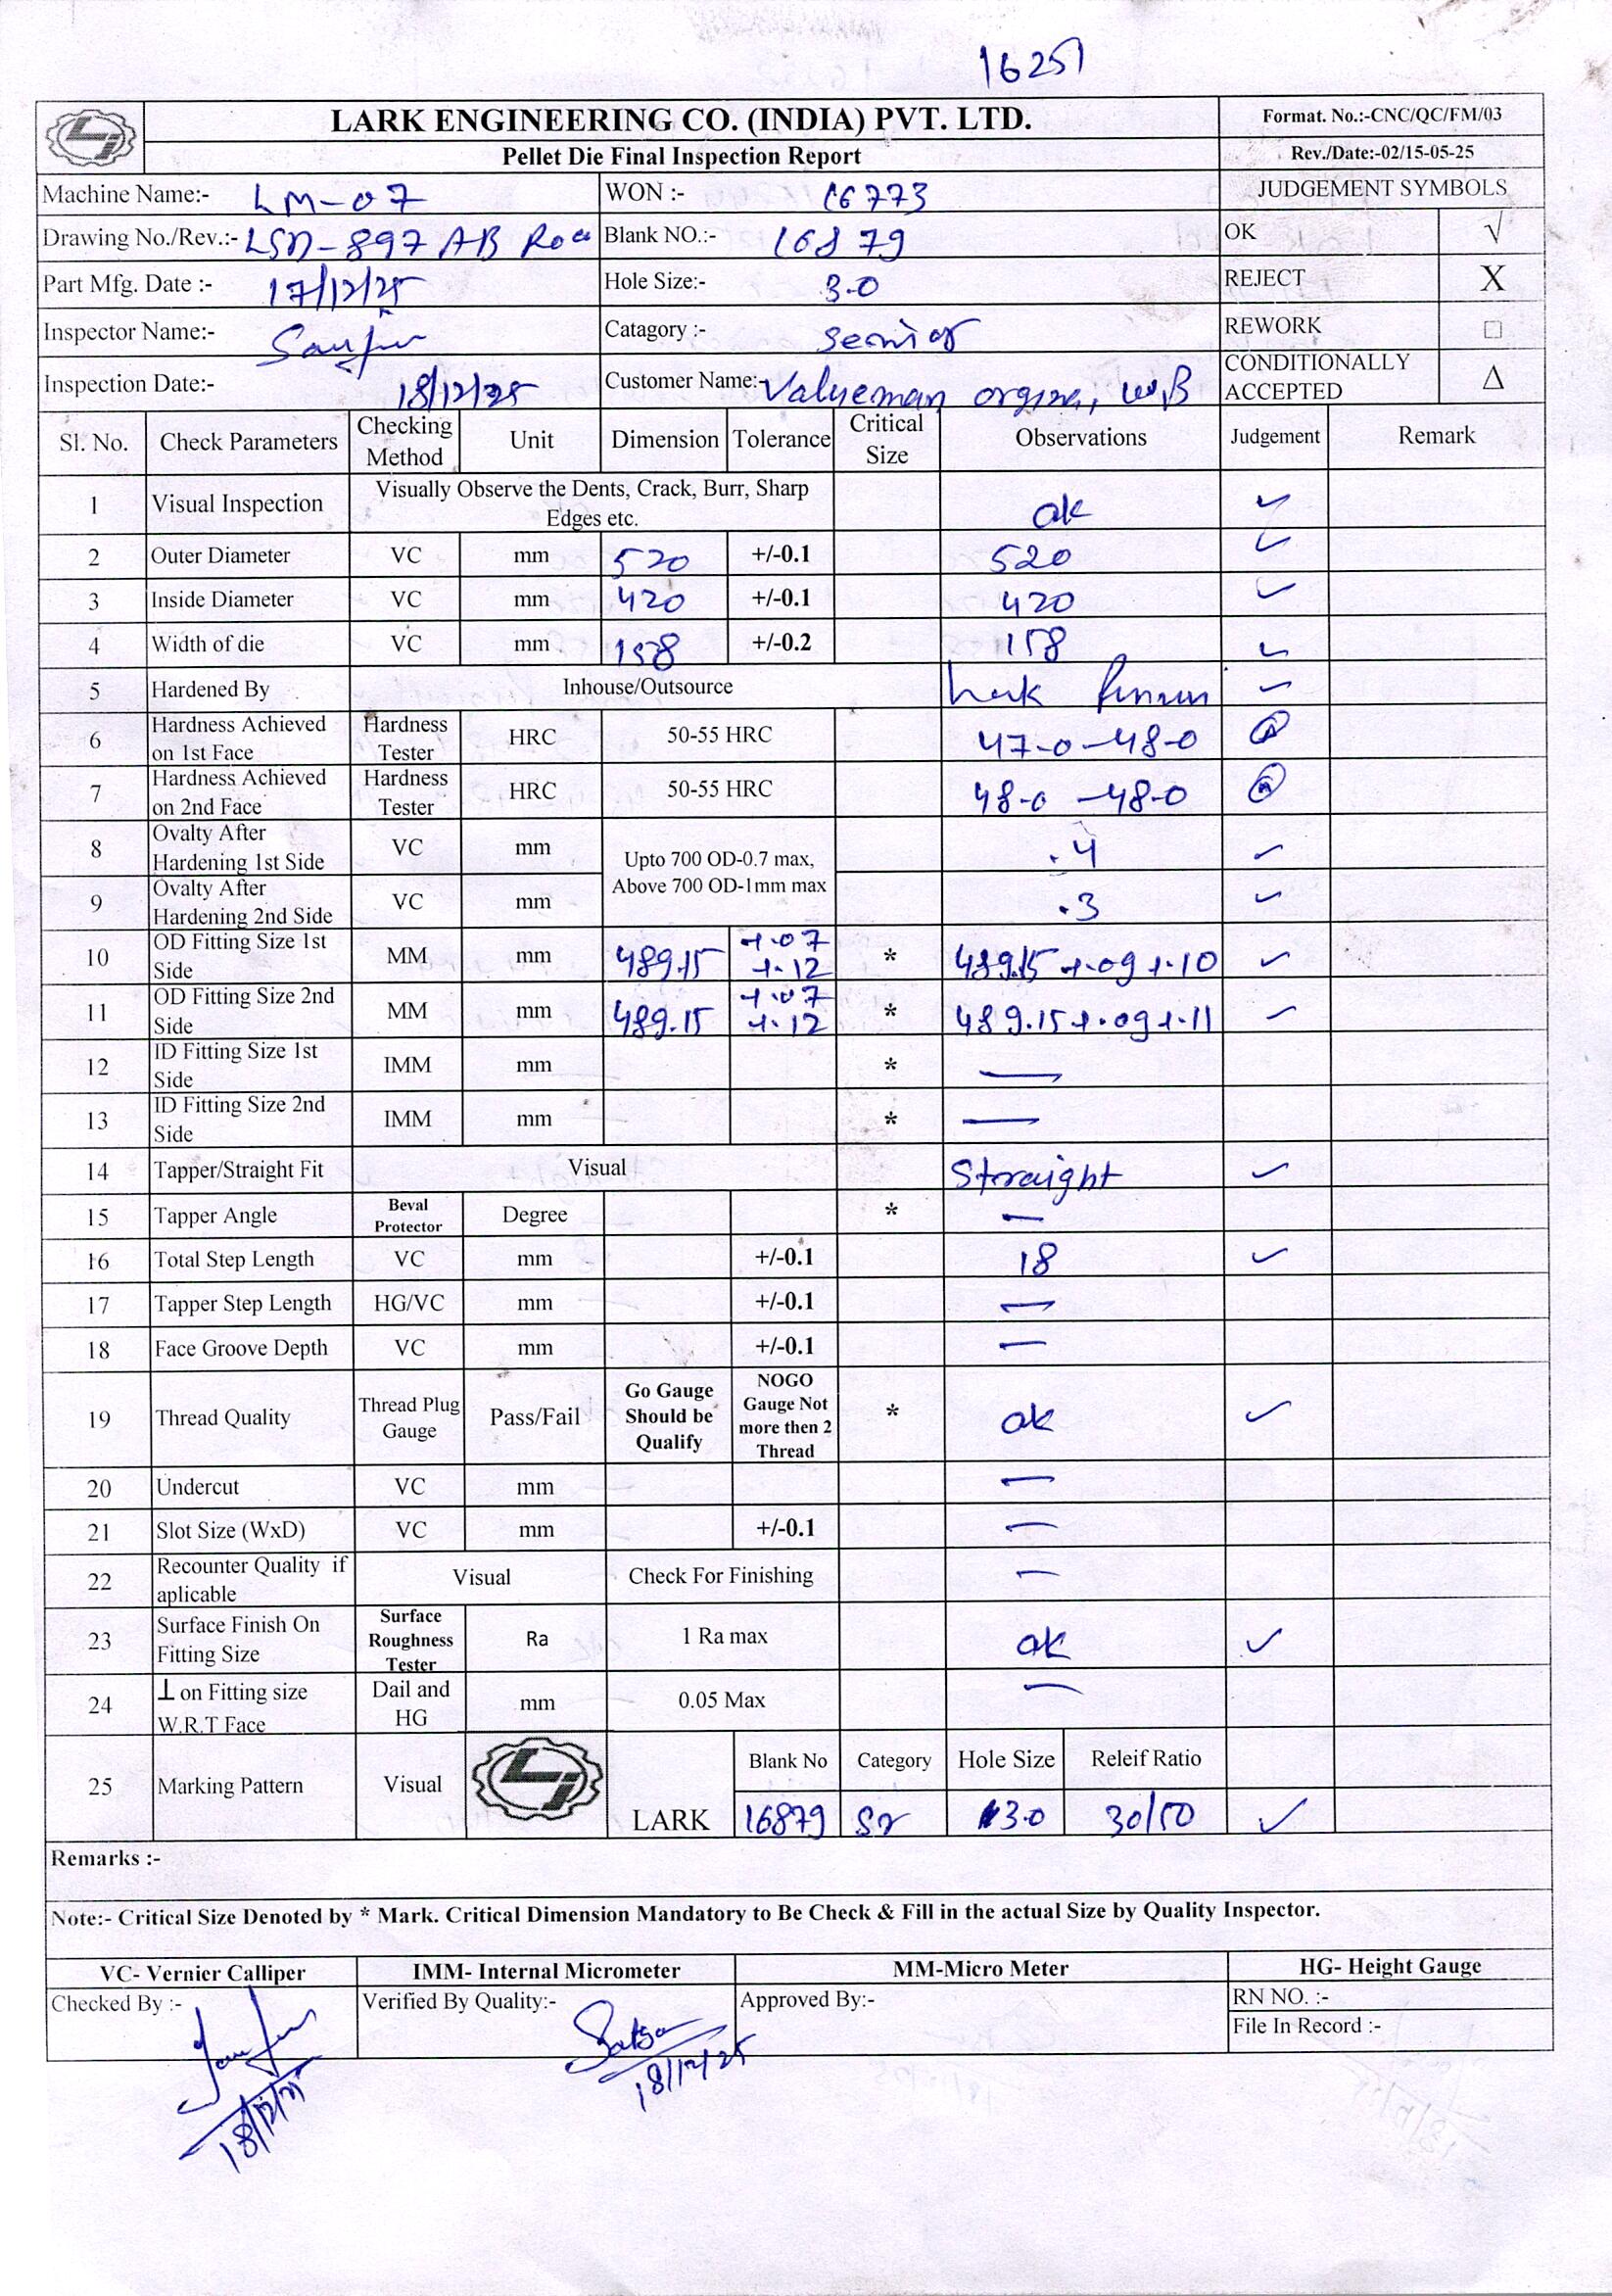 16251
LARK ENGINEERING CO. (INDIA) PVT. LTD.
Format. No.:-CNC/QC/FM/03
Pellet Die Final Inspection Report
Rev./Date:-02/15-05-25
Machine Name:- LM-07 WON :- 16773 JUDGEMENT SYMBOLS
Drawing No./Rev.:- LSD-897 AB Blank NO.:- 16879 OK √
Part Mfg. Date :- 17/12/25 Hole Size:- 3.0 REJECT X
Inspector Name:- Catagory :- Senior REWORK □
Inspection Date:- 18/12/25 Customer Name:- Valueman W.B CONDITIONALLY ACCEPTED Δ
Sl. No. Check Parameters Checking Method Unit Dimension Tolerance Critical Size Observations Judgement Remark
1 Visual Inspection Visually Observe the Dents, Crack, Burr, Sharp Edges etc. ok ✓
2 Outer Diameter VC mm 520 +/-0.1 520 ✓
3 Inside Diameter VC mm 420 +/-0.1 420 ✓
4 Width of die VC mm 158 +/-0.2 158 ✓
5 Hardened By Inhouse/Outsource Lark ✓
6 Hardness Achieved on 1st Face Hardness Tester HRC 50-55 HRC 47-0 -48-0
7 Hardness Achieved on 2nd Face Hardness Tester HRC 50-55 HRC 48-0 -48-0
8 Ovalty After Hardening 1st Side VC mm Upto 700 OD-0.7 max, Above 700 OD-1mm max .4 ✓
9 Ovalty After Hardening 2nd Side VC mm .3 ✓
10 OD Fitting Size 1st Side MM mm 489.15 +.07 +.12 * 489.15 +.09 +.10 ✓
11 OD Fitting Size 2nd Side MM mm 489.15 +.07 +.12 * 489.15 +.09 +.11 ✓
12 ID Fitting Size 1st Side IMM mm * —
13 ID Fitting Size 2nd Side IMM mm * —
14 Tapper/Straight Fit Visual Straight ✓
15 Tapper Angle Beval Protector Degree * —
16 Total Step Length VC mm +/-0.1 18 ✓
17 Tapper Step Length HG/VC mm +/-0.1 —
18 Face Groove Depth VC mm +/-0.1 —
19 Thread Quality Thread Plug Gauge Pass/Fail Go Gauge Should be Qualify NOGO Gauge Not more then 2 Thread * ok ✓
20 Undercut VC mm —
21 Slot Size (WxD) VC mm +/-0.1 —
22 Recounter Quality if aplicable Visual Check For Finishing —
23 Surface Finish On Fitting Size Surface Roughness Tester Ra 1 Ra max ok ✓
24 ⊥ on Fitting size W.R.T Face Dail and HG mm 0.05 Max —
25 Marking Pattern Visual LARK Blank No Category Hole Size Releif Ratio
16879 Sr 3.0 30/50 ✓
Remarks :-
Note:- Critical Size Denoted by * Mark. Critical Dimension Mandatory to Be Check & Fill in the actual Size by Quality Inspector.
VC- Vernier Calliper IMM- Internal Micrometer MM-Micro Meter HG- Height Gauge
Checked By :- Verified By Quality:- Approved By:- RN NO. :-
File In Record :-
18/12/25
18/12/25